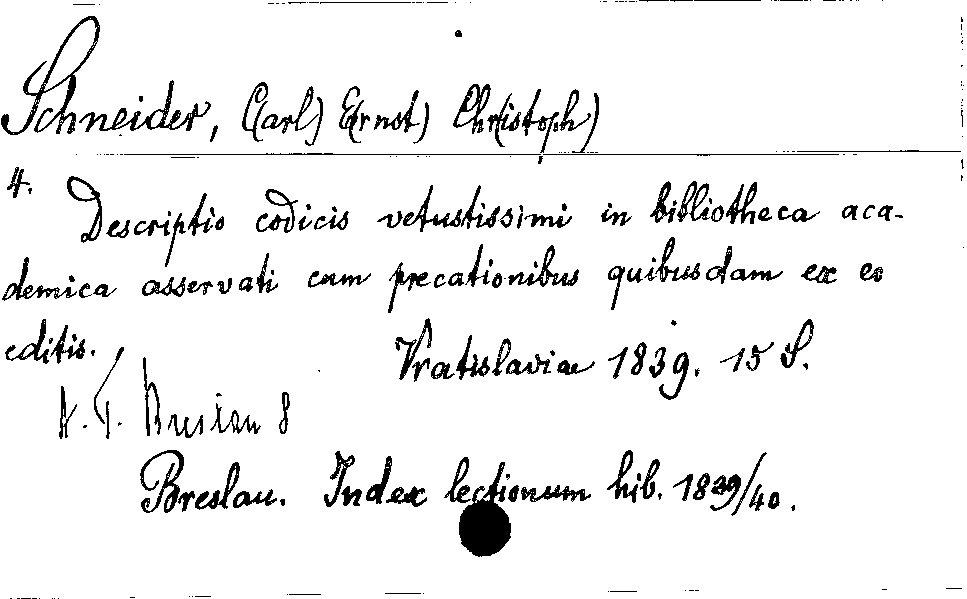 Schneider, C(arl) E(rnst) Chr(istoph)
4.
Descriptio codicis vetustissimi in bibliotheca aca-
demica asservati cum precationibus quibusdam ex eo
editis.
Vratislaviae 1839. 15 S.
Breslau 8
Breslau. Index lectionum hib. 1839/40.